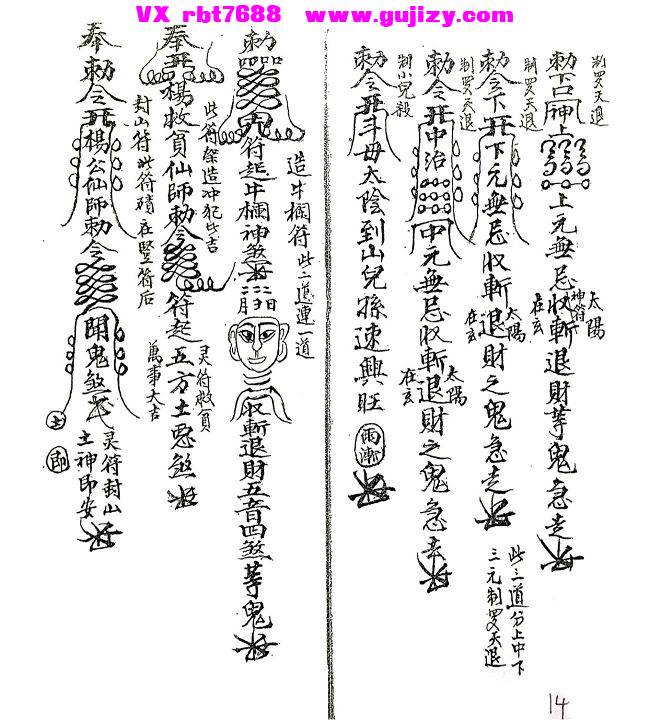 VX rbt7688 www.gujizy.com
制罗天退
勅下口神上
上元無忌收斬退財等鬼急走
太陽
神符
在玄
制罗天退
勅令下
下元無忌收斬退財之鬼急走
太陽
在玄
制罗天退
勅令
中治
中元無忌收斬退財之鬼急走
太陽
在玄
此三道分上中下
三元制罗天退
制小兒殺
勅令
斗母太陰到山兒孫速興旺
雨漸
造牛欄符此二道連一道
勅
符起牛欄神煞
收斬退財五音四煞等鬼
奉
楊救貧仙師勅令
符起五方土
煞
此符
造冲犯
吉
灵符救貧
萬事大吉
奉勅令
楊公仙師勅令
鬼煞
封山符此符
在竪符后
灵符封山
土神即安
土
即
14